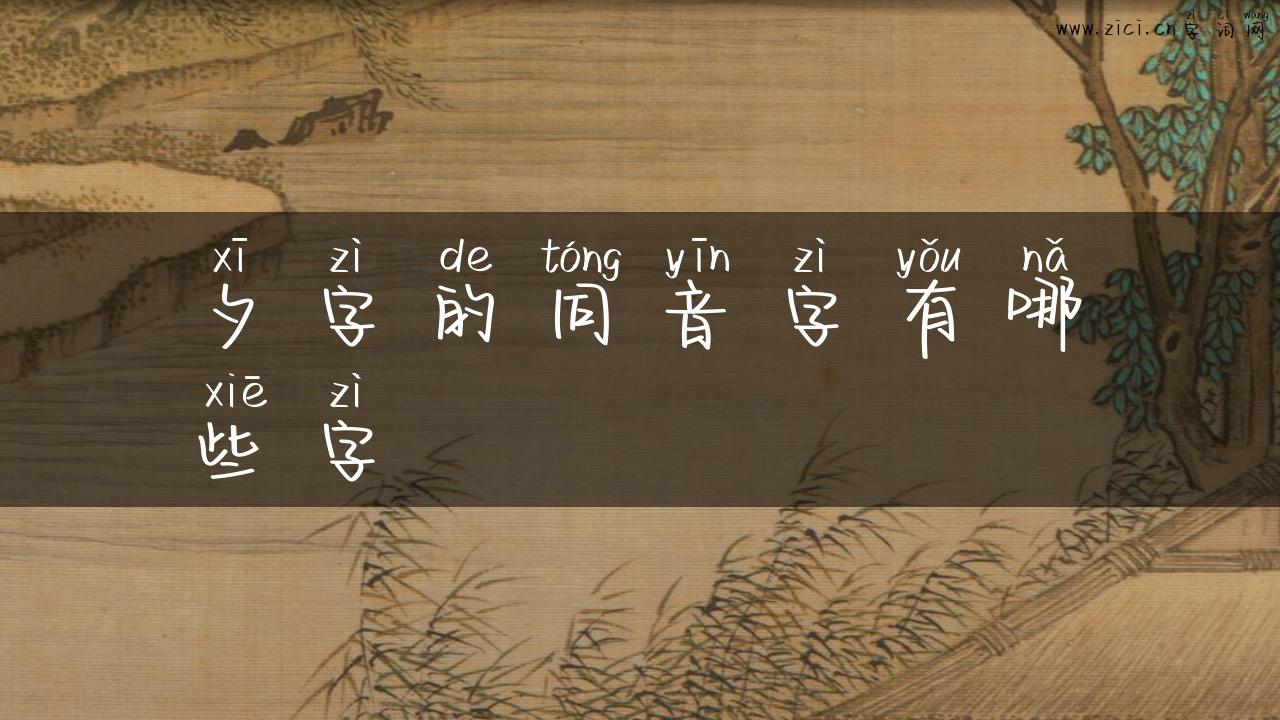 zì cí wǎng
www.zici.cn字词网
xī zì de tóng yīn zì yǒu nǎ
夕字的同音字有哪
xiē zì
些字